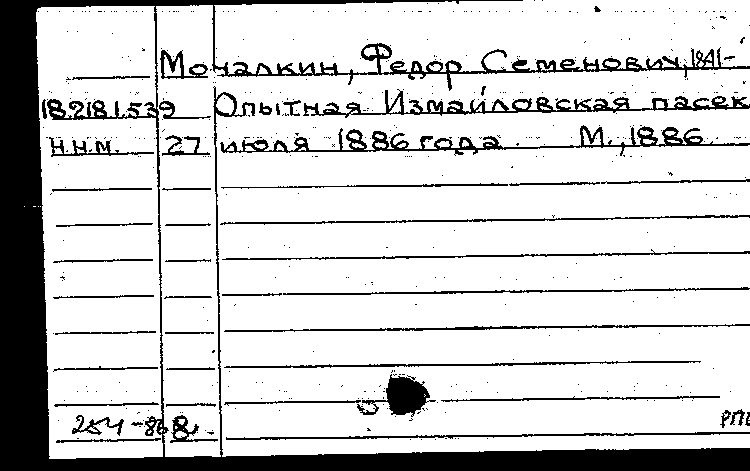 Мочалкин, Федор Семенович, 1841-
18.218.1.539 Опытная Измайловская пасек
Н.Н.М. 27 июля 1886 года. М., 1886.
254-868.-